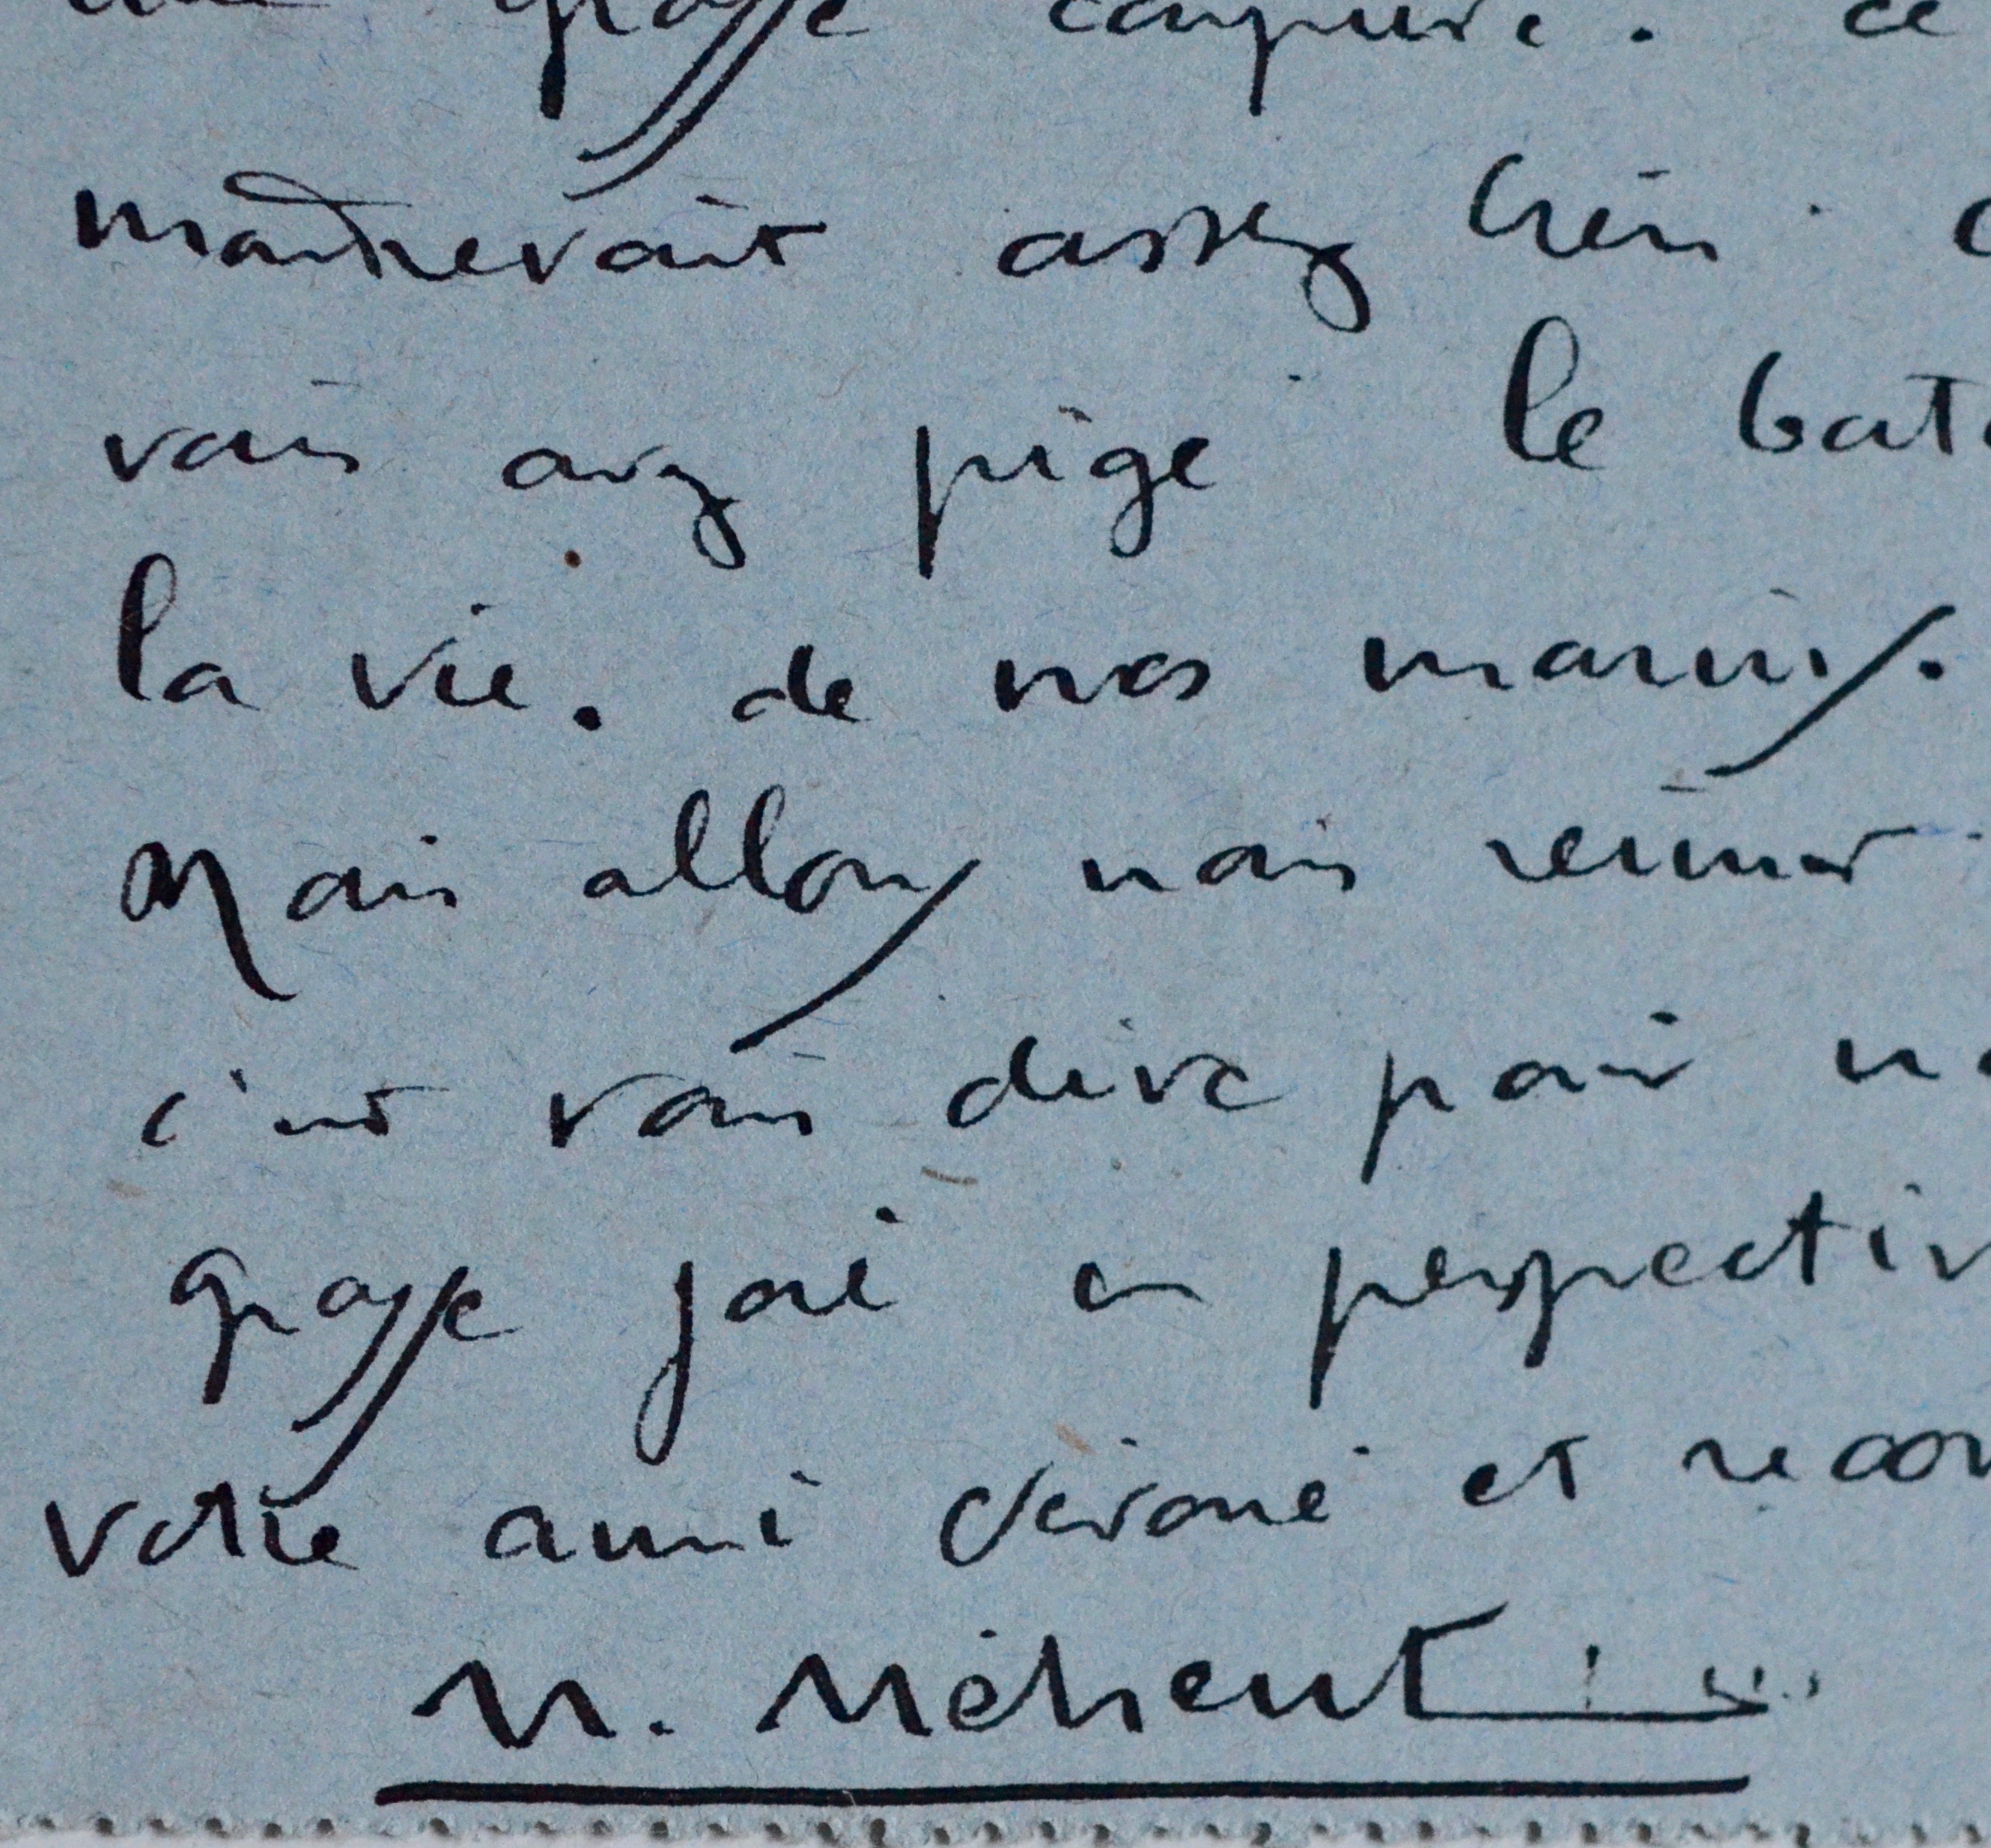 une grosse coupure. ce
manoeuvrait assez bien.
vous avez pigé le bat
la vie. de nos marins.
Mais allons nous réunir
c'est vous dire pour no
grosse joie en perspectiv
votre ami dévoué et recon
M. Méheut